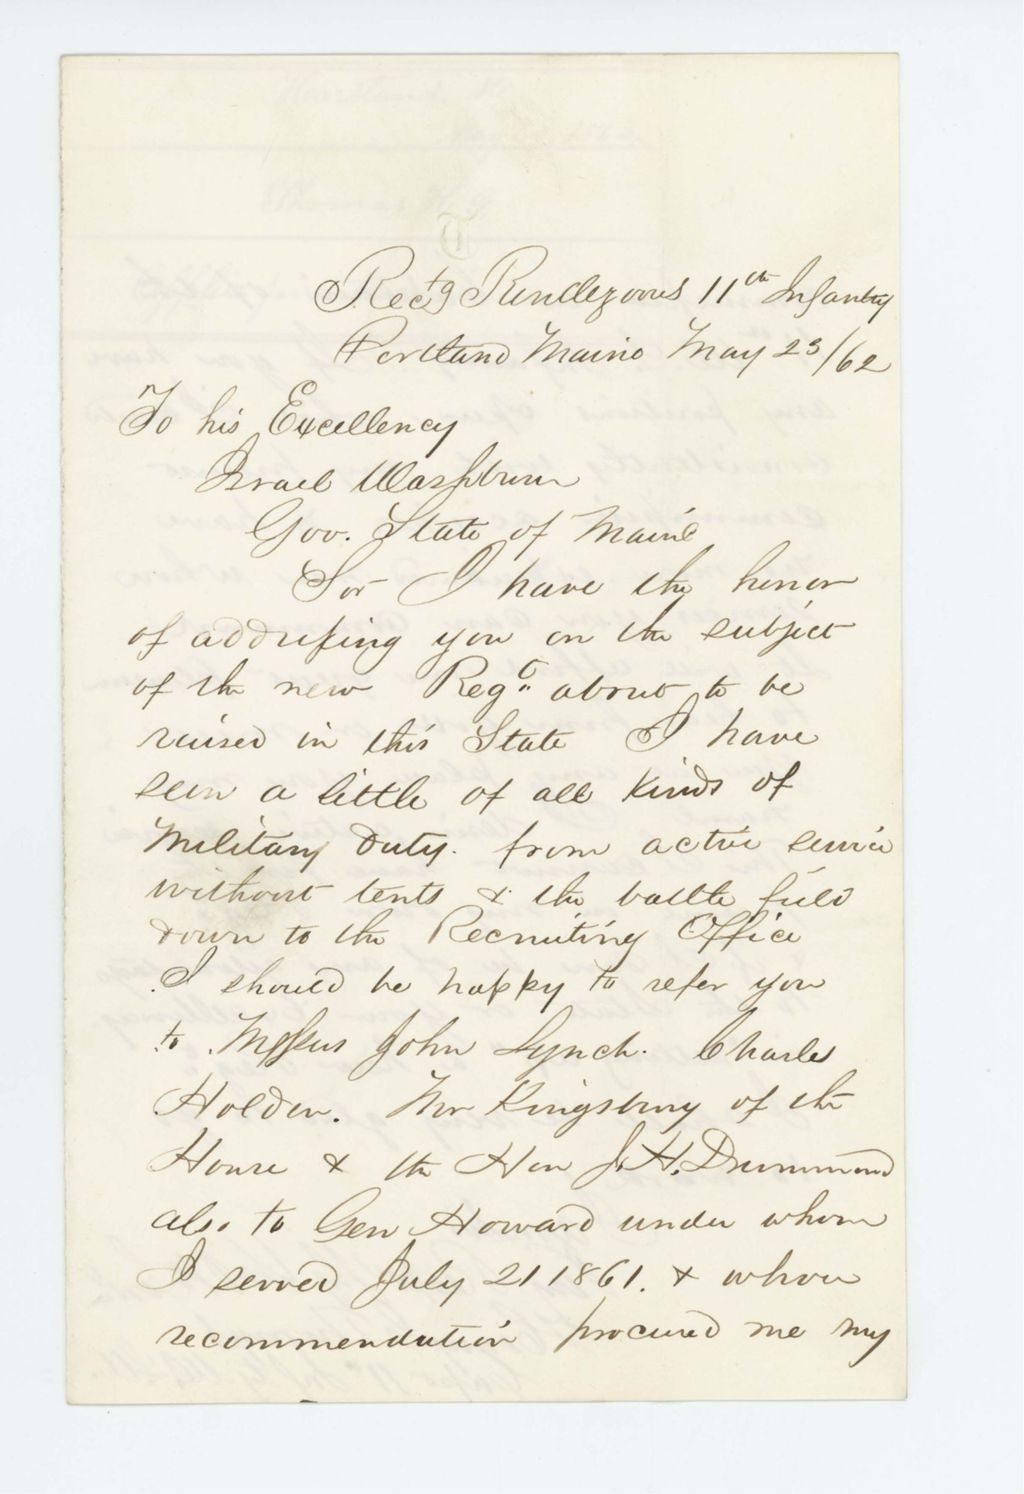 Rectg Rendezvous 11th Infantry
Portland Maine May 23/62
To his Excellency
Israel Washburn
Gov. State of Maine
Sir I have the honor
of addressing you on the subject
of the new Regt. about to be
raised in this State I have
seen a little of all kinds of
Military duty. from active service
without tents & the battle field
down to the Recruiting Office
I should be happy to refer you
to Messrs John Lynch. Charles
Holden. Mr Kingsbury of the
House & the Hon J. H. Drummond
also to Gen Howard under whom
I served July 21 1861. & whose
recommendation procured me my